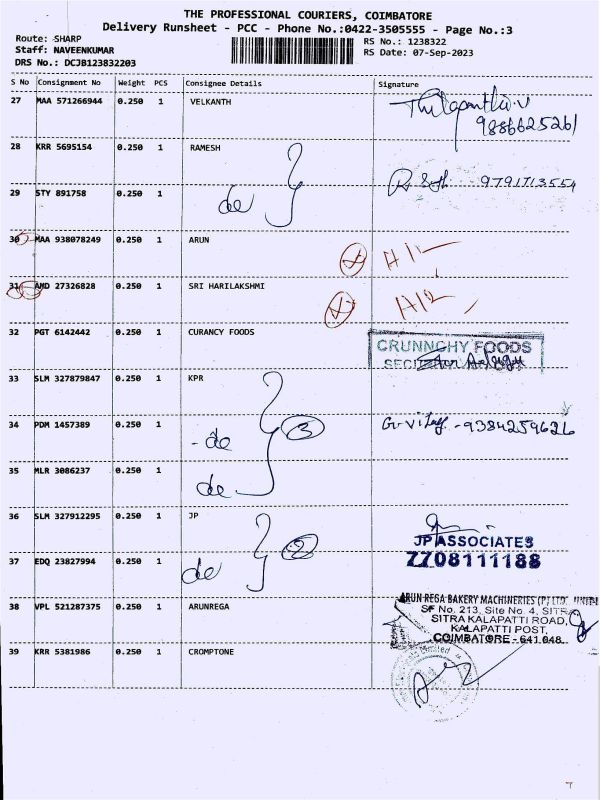 THE PROFESSIONAL COURIERS, COIMBATORE
Delivery Runsheet - PCC - Phone No.:0422-3505555 - Page No.:3
Route: SHARP
Staff: NAVEENKUMAR
DRS No.: DCJB123832203
RS No.: 1238322
RS Date: 07-Sep-2023
S No Consignment No Weight PCS Consignee Details Signature
27 MAA 571266944 0.250 1 VELKANTH
9886625261
28 KRR 5695154 0.250 1 RAMESH
9791713554
29 STY 891758 0.250 1 de
30 MAA 938078249 0.250 1 ARUN
31 AMD 27326828 0.250 1 SRI HARILAKSHMI
32 PGT 6142442 0.250 1 CURANCY FOODS
CRUNNCHY FOODS
33 SLM 327879847 0.250 1 KPR
34 PDM 1457389 0.250 1 - de 3 9384259626
35 MLR 3086237 0.250 1 de
36 SLM 327912295 0.250 1 JP
JP ASSOCIATES
37 EDQ 23827994 0.250 1 de 2 7708111188
38 VPL 521287375 0.250 1 ARUNREGA
ARUN REGA BAKERY MACHINERIES (P) LTD.
SF No. 213, Site No. 4, SITRA
SITRA KALAPATTI ROAD,
KALAPATTI POST,
COIMBATORE - 641 048.
39 KRR 5381986 0.250 1 CROMPTONE